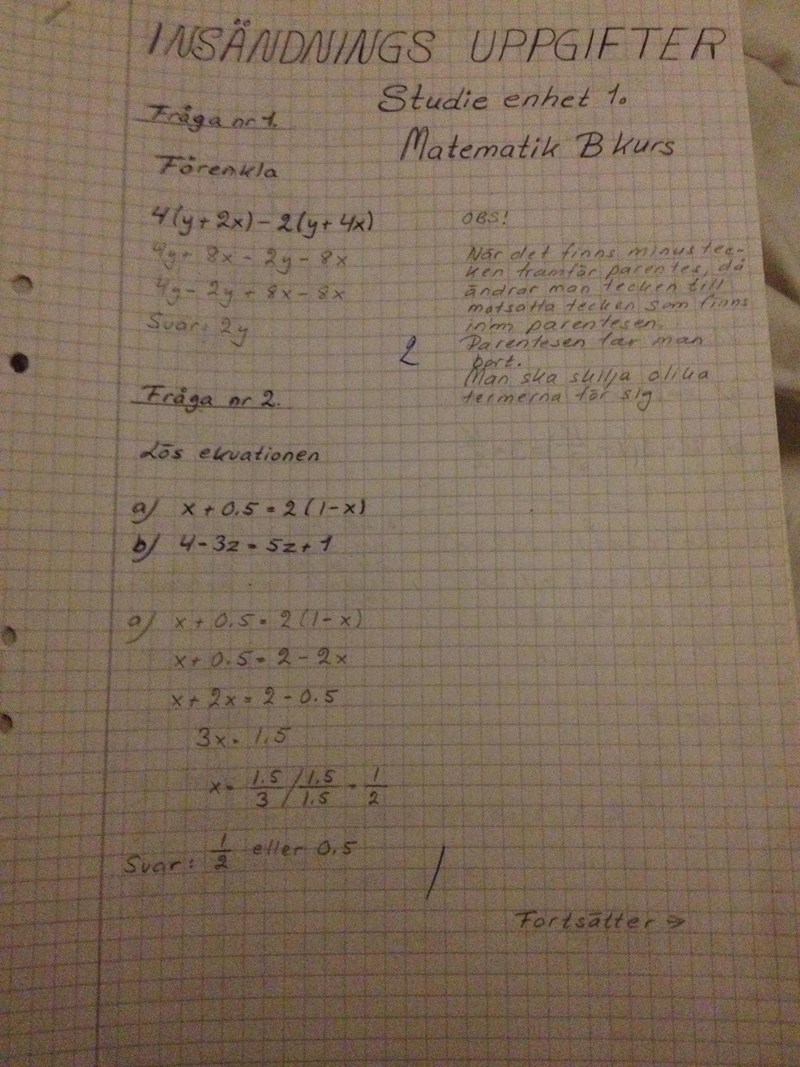 INSÄNDNINGS UPPGIFTER
Studie enhet 1.
Fråga nr 1.
Matematik B kurs
Förenkla
4(y + 2x) - 2(y + 4x)
4y + 8x - 2y - 8x
4y - 2y + 8x - 8x
Svar: 2y
OBS!
När det finns minustec-
ken framför parentes, då
ändrar man tecken till
motsatta tecken som finns
in'm parentesen.
Parentesen tar man
bort.
Man ska skilja olika
termerna för sig
2
Fråga nr 2.
Lös ekvationen
a) x + 0.5 = 2(1-x)
b) 4-3z = 5z+1
a) x + 0.5 = 2(1-x)
x + 0.5 = 2 - 2x
x + 2x = 2 - 0.5
3x = 1.5
x = 1.5/3 / 1.5/1.5 = 1/2
Svar: 1/2 eller 0.5
/
Fortsätter →